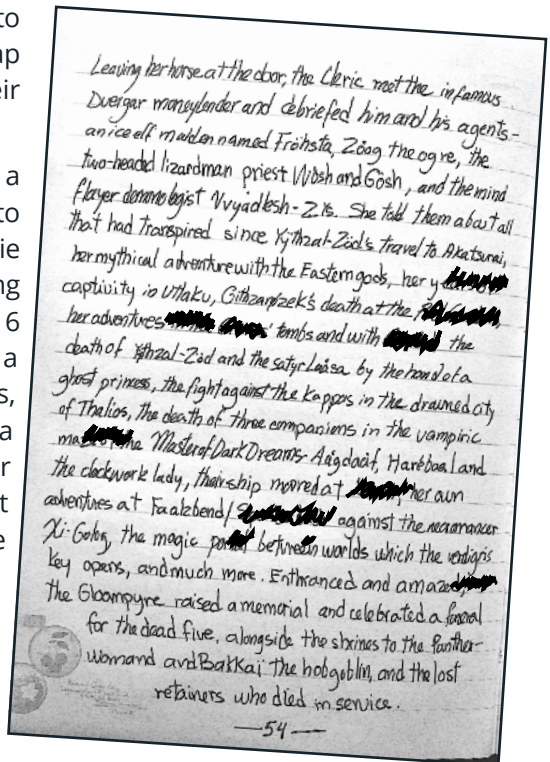 to
ap
eir
a
to
ie
ng
6
a
s,
a
r
t
e
Leaving her horse at the door, the Cleric met the infamous
Duergar moneylender and debriefed him and his agents-
an ice elf maiden named Fröhsta, Zöog the ogre, the
two-headed lizardman priest Wösh and Gösh, and the mind
flayer demonologist Vvyädlesh-Zls. She told them about all
that had transpired since Kÿthzal-Zöd's travel to Akatsurai,
her mythical adventure with the Eastern gods, her y
captivity in Utlaku, Githzanizek's death at the
her adventures tombs and with the
death of Kÿthzal-Zöd and the satyr by the hand of a
ghost princess, the fight against the kappas in the drained city
of Thelios, the death of three companions in the vampiric
Master of Dark Dreams- Harébaal and
the clockwork lady, moored at her own
adventures at Faalzbend/ against the necromancer
Xi-Golog, the magic between worlds which the verdigris
key opens, and much more. Enthranced and amazed
the Gloompyre raised a memorial and celebrated a funeral
for the dead five, alongside the shrines to the Panther-
womand and Bakkai the hobgoblin, and the lost
retainers who died in service.
—54—